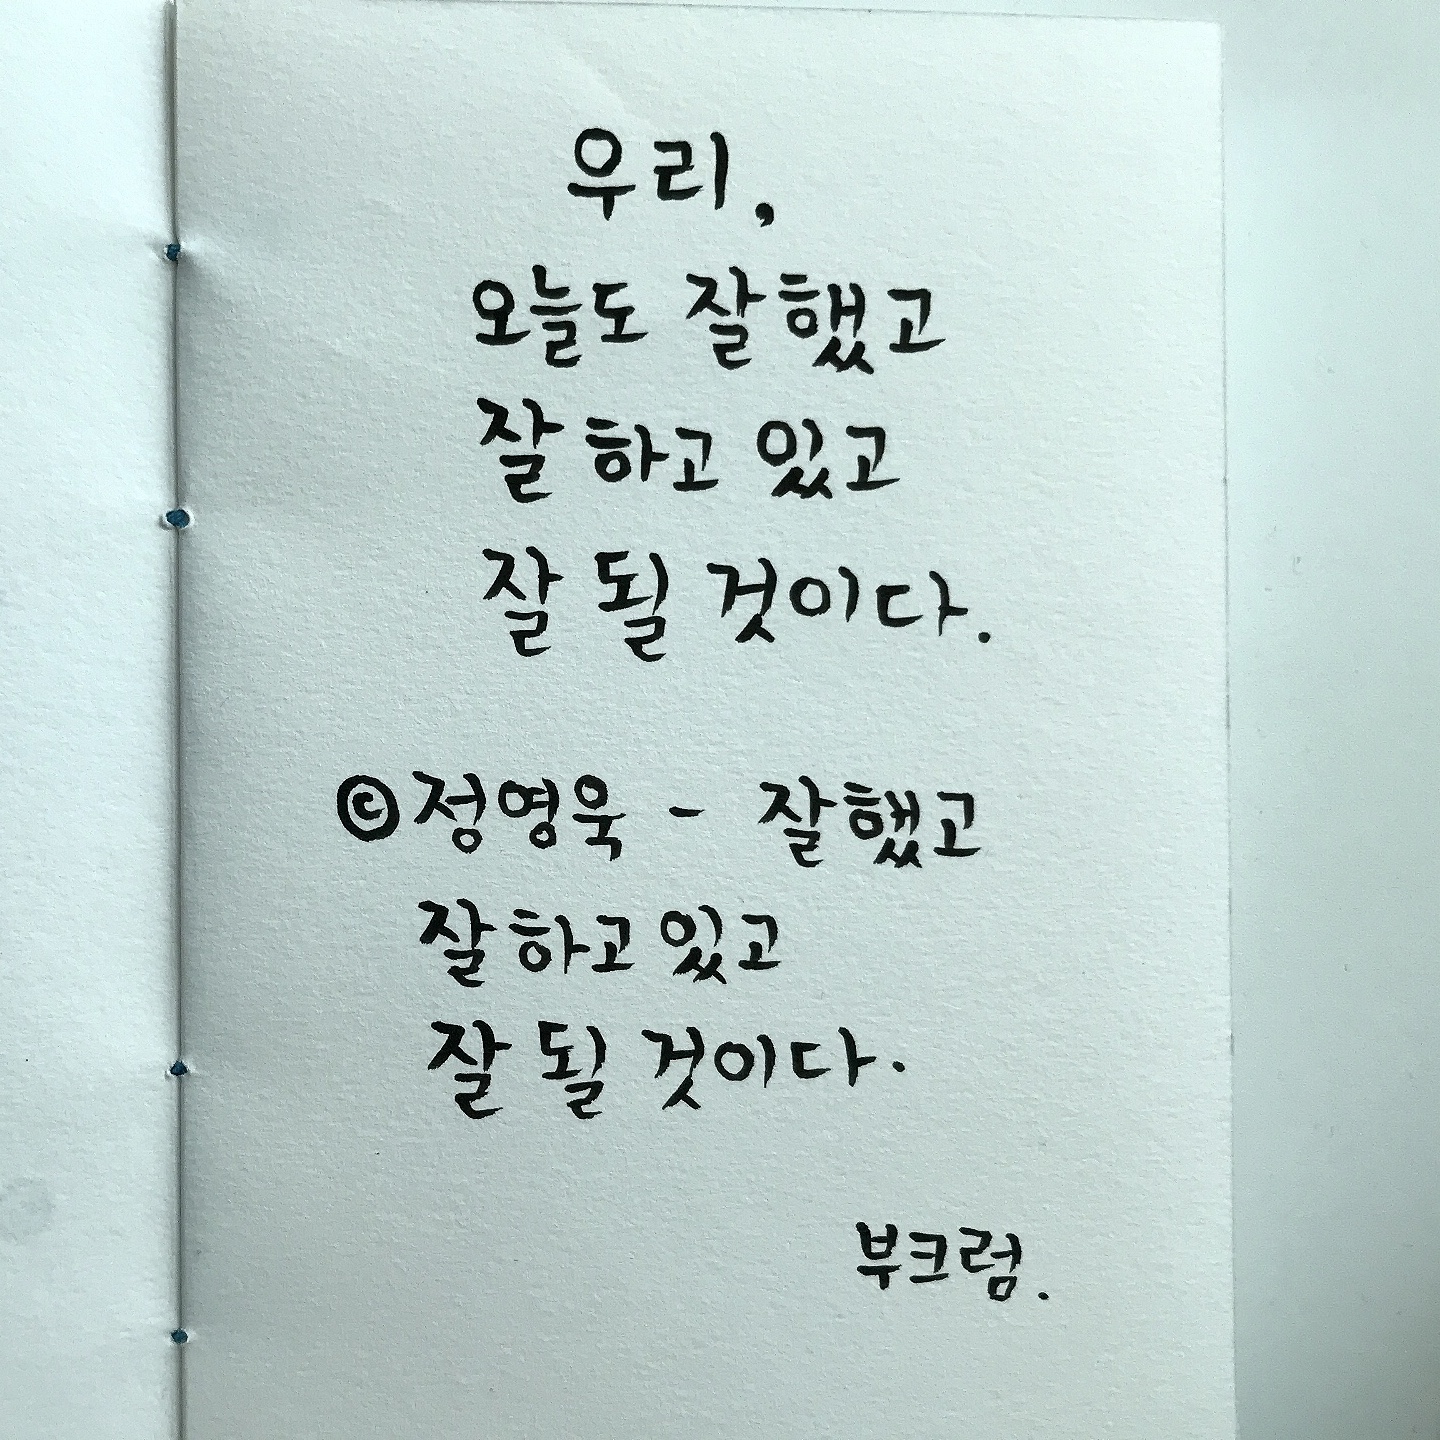 우리,
오늘도 잘했고
잘 하고 있고
잘 될 것이다.
©정영욱 - 잘했고
잘하고 있고
잘 될 것이다.
부크럼.